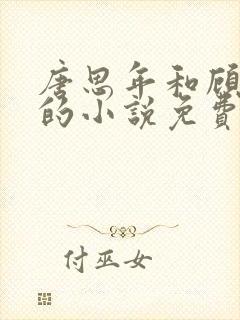 唐思年和顾
的小说免费
付巫女